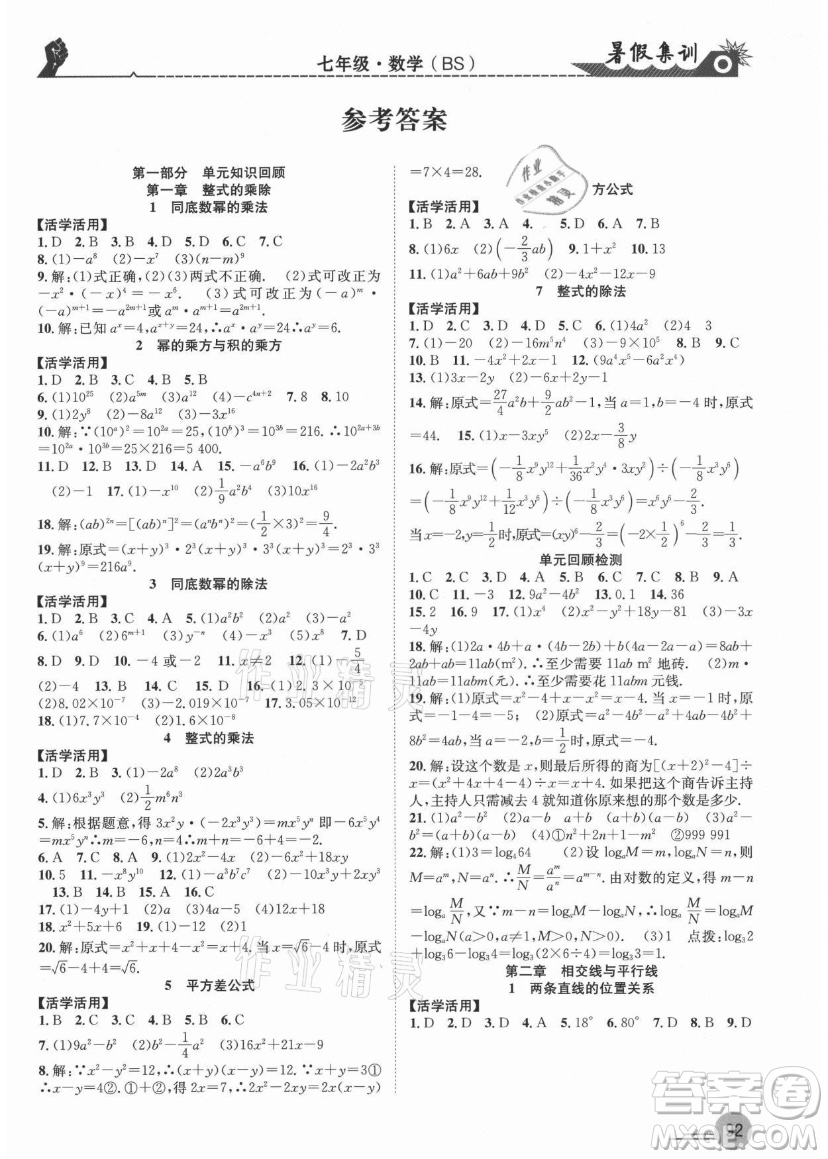 七年级·数学(BS)
暑假集训
参考答案
第一部分 单元知识回顾
第一章 整式的乘除
1 同底数幂的乘法
【活学活用】
1. D 2. B 3. B 4. D 5. C 6. C 7. C
8. (1)-a⁸ (2)-y⁷ (3)(n-m)⁹
9. 解:(1)式正确,(2)(3)两式不正确. (2)式可改正为
-x²·(-x)⁴=-x⁶. (3)式可改正为 aᵐ·
(-a)ᵐ⁺¹=-a²ᵐ⁺¹或 aᵐ·aᵐ⁺¹=a²ᵐ⁺¹.
10. 解:已知 aˣ=4,aˣ⁺ʸ=24,∴aˣ·aʸ=24.∴aʸ=6.
2 幂的乘方与积的乘方
【活学活用】
1. D 2. B 3. D 4. D 5. D
6. (1)10²⁵ (2)a⁵ᵐ (3)a¹² (4)-c⁴ⁿ⁺² 7. 8 8. 10
9. (1)2y⁸ (2)-8a¹² (3)2x¹⁶
10. 解:∵(10ᵃ)²=10²ᵃ=25,(10ᵇ)³=10³ᵇ=216,∴10²ᵃ⁺³ᵇ
=10²ᵃ·10³ᵇ=25×216=5 400.
11. D 12. D 13. D 14. A 15. -a⁶b⁹ 16. (1)-2a²b³
(2)-1 17. (1)-x¹⁰ (2)\frac{1}{9}a⁴b² (3)10x²
18. 解:(ab)²ⁿ=[(ab)ⁿ]²=(aⁿbⁿ)²=(\frac{1}{2}×3)²=\frac{9}{4}.
19. 解:原式=(x+y)³·2³(x+y)³·3³(x+y)³=a·2³·3³·
a·a=216a³.
3 同底数幂的除法
【活学活用】
1. D 2. B 3. C 4. A 5. (1)a²b² (2)a²b²
6. (1)a⁶ (2)6ᵐ⁺¹ (3)y⁻ⁿ (4)-x³ (5)x²y² 7. \frac{5}{3}
8. D 9. D 10. -4 或-2 11. x≠2 12. (1)-\frac{5}{4}
(2)-4 13. A 14. B 15. C 16. (1)2.3×10⁻⁵
(2)8.02×10⁻⁷ (3)2.1×10⁻⁸ 17. 3.05×10⁻¹²
18. (1)7.7×10⁻⁴ (2)1.6×10⁻⁸
4 整式的乘法
【活学活用】
1. D 2. D 3. (1)-2a⁸ (2)a³b²
4. (1)6x³y³ (2)\frac{1}{2}m⁶n³
5. 解:根据题意,得 3x²y·(-2x³y³)=mx⁵yⁿ 即-6x⁵y⁴
=mx⁵yⁿ∴m=-6,n=4∴m+n=-6+4=-2.
6. A 7. C 8. A 9. (1)2x²-4x (2)-6x³+15x²-3x
10. 5 11. -x²-8x 12. (1)-a³b²c (2)-3x³y-xy²
13. B 14. B 15. A 16. B
17. (1)-4y+1 (2)5a-44 (3)5a-5
18. x²+5x+6 19. (1)-12 (2)-12
20. 解:原式=x²-4x+4x-4=x²-4. 当 x=√6 时,原式
=√6²-4=6-4=2.
5 平方差公式
【活学活用】
1. B 2. C 3. B 4. C 5. A 6. D
7. (1)9a²-b² (2)-a²+4b² 8. a²-\frac{1}{4}
9. 解:∵x²-y²=12,∴(x+y)(x-y)=12,∵x+y=3①
∴x-y=4②,①+②得,2x=7,∴2x²-2xy=2x(x-y)
=7×4=28.
方公式
【活学活用】
1. B 2. C 3. A 4. 5. B 6. A 7. A
8. (1)6x (2)(-\frac{2}{3}ab) 9. 1+x² 10. 13
11. (1)a²+6ab+9b² (2)-4xy+y²
7 整式的除法
【活学活用】
1. D 2. D 3. C 4. D 5. C 6. (1)4a² (2)4 3
7. (1)9x (2)-16m⁵n⁴ (3)-9×10⁵ 8. B 9. C
10. B 11. -4x²+2x-1 12. (9a⁴x⁴-2a²x³)
13. (1)3x-2y (2)-6x+2y-1
14. 解:原式=\frac{27}{4}a²b+\frac{9}{2}ab²-1 当 a=1,b=-4 时,原式
=44. 15. (1)x-xy⁵ (2)-x-\frac{3}{8}y
16. 解:原式=(-\frac{1}{8}x⁹y¹²+\frac{1}{36}x²y⁶·x⁶y³)÷(-\frac{1}{8}x³y⁶)
=(-\frac{1}{8}x⁹y¹²+\frac{1}{6}x⁸y⁹)÷(-\frac{1}{8}x³y⁶)=x⁶y⁶-\frac{2}{9}x⁵y³.
单元回顾检测
15. 2 16. 9 17. (1)x⁴ (2)-x²+y²+18y-81 (3)-9x
-4y
2ab+4ab=11ab(m²).∴至少需要 11ab m² 地砖.
(2)11ab·m=11abm(元).∴至少需要 11abm 元钱.
19. 解:(1)原式=x²-4+x-x²=x-4.
20. 解:设这个数是 x,则最后所得的商为[(x+2)²-4]÷x
=(x²+4x+4-4)÷x=x+4. 如果他把这个商告诉主持
人,主持人只需减去 4 就可以知道你原来所想的数是多少.
21. (1)a²-b² (2)a-b a+b (a+b)(a-b) (3)(a+b)(a-b)
=a²-b² (4)①4m²-n²+2n-1 ②999 991
22. 解:(1)3=log₄64 (2)设 logₐM=m,logₐN=n,则
M=aᵐ,N=aⁿ.∴\frac{M}{N}=\frac{aᵐ}{aⁿ}=aᵐ⁻ⁿ. 由对数的定义,得 m-n
=logₐ\frac{M}{N},又∵m-n=logₐM-logₐN,∴logₐ\frac{M}{N}=logₐM
-logₐN(a>0,a≠1,M>0,N>0). (3)1 点拨:log₃2
+log₃6-log₃4=log₃(2×6÷4)=log₃3=1.
第二章 相交线与平行线
1 两条直线的位置关系
【活学活用】
1. D 2. D 3. C 4. A 5. 18° 6. 80° 7. B 8. B 9. D
作业精灵
答案圈